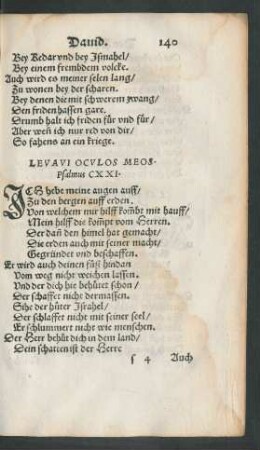 Dauid. 140
Bey Kedar vnd bey Jsmahel/
Bey einem frembdem volcke.
Auch wird es meiner selen lang/
Zu wonen bey der scharen.
Bey denen die mit schwerem zwang/
Den friden hassen gare.
Drumb halt ich friden für vnd für/
Aber weñ ich nur red von dir/
So fahens an ein kriege.
LEVAVI OCVLOS MEOS.
Psalmus CXXI.
ICh hebe meine augen auff/
Zu den bergen auff erden.
Von welchem mir hilff kom̃bt mit hauff/
Mein hilff die kom̃pt vom Herren.
Der dañ den himel hat gemacht/
Die erden auch mit seiner macht/
Gegründet vnd beschaffen.
Er wird auch deinen füß hindan
Vom weg nicht weichen lassen.
Vnd der dich hie behütet schon/
Der schaffet nicht dermassen.
Sihe der hüter Jsrahel/
Der schlaffet nicht mit seiner seel/
Er schlummert nicht wie menschen.
Der Herr behüt dich in dem land/
Dein schatten ist der Herre
s 4 Auch